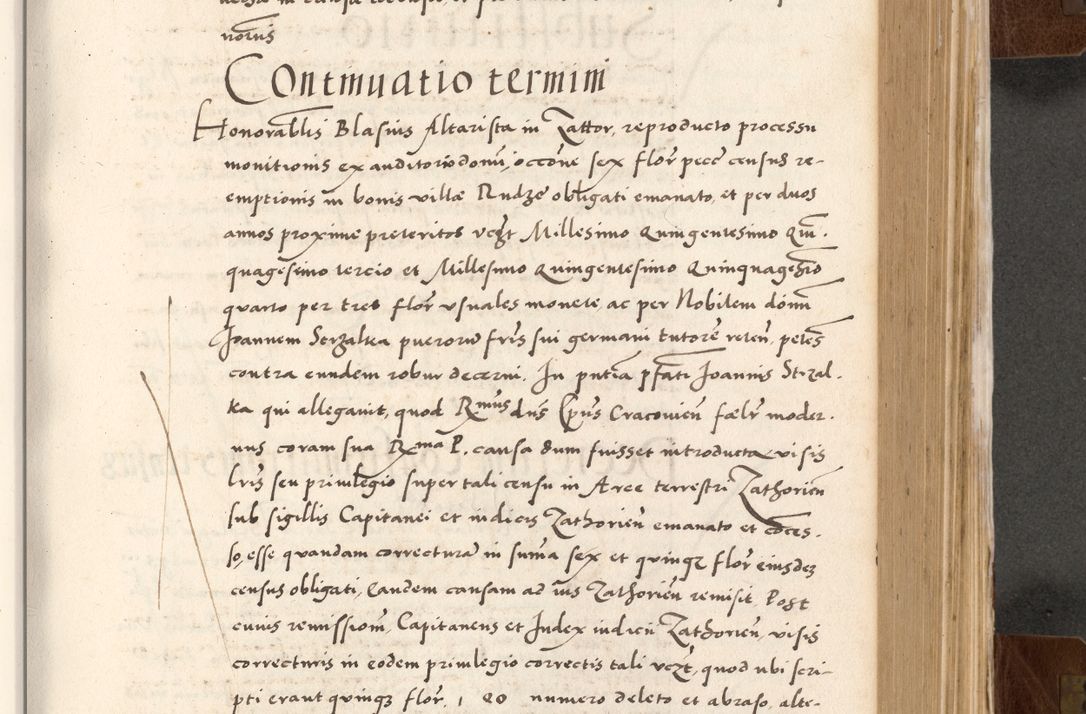 norus
Contmuatio termini
Honorabłis Blasius Altarista in Zattor, reproducto processu
monitionis ex auditorio domi, occõne sex flor pecc census re-
emptionis in bonis villæ Rudze obligati emanato, et per duos
annos proxime preteritos vczt Millesimo Quingentesimo Quĩ-
quagesimo tercio et Millesimo Quingentesimo Quinquagesĩo
quarto per tres flor vsuales monete, ac per Nobilem dõm
Joannem Strzalka puerorũ frĩs sui germani tutorẽ reteñ, petes
contra eundem robur decerni. In pñtia pfati Joannis Strzal-
ka qui allegauit, quod Rmus dñs Epũs Cracouieñ fælr moder-
nus coram sua Rma P. causa dum fuisset introducta visis
lrĩs seu priuilegio super tali censu in Arce terrestri Zathorieñ
sub sigillis Capitanei et iudicis Zathorieñ emanato et cõces-
so, esse quandam correcturã in sum̃a sex et quinqꝫ flor eiusdeꝫ
census obligati, Eandem causam ad ius Zathorieñ remisit. Post
cuius remissioñ, Capitaneus et Judex iudicii Zathorieñ, visis
correcturis in eodem priuilegio correctis tali vczt, quod ubi scri-
pti eraut quinqꝫ flor, numero deleto et abraso, alte-